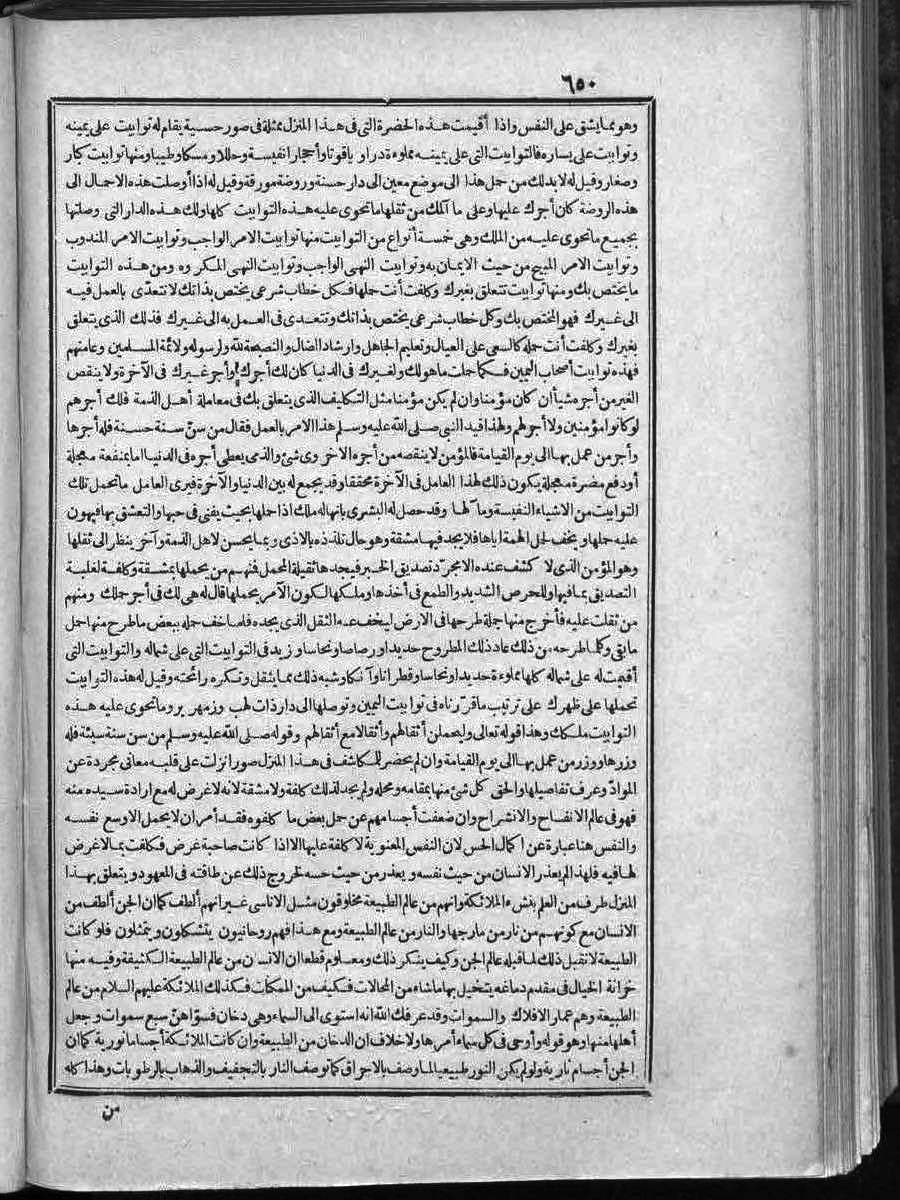 ٦٥٠
وهو مما يشق على النفس واذا أقيمت هذه الحضرة التى فى هذا المنزل ممثلة فى صور حسية يقام له توابيت على يمينه
وتوابيت على يساره فالتوابيت التى على يمينه مملوءة درا و ياقوتا وأحجارا نفيسة وحللا ومسكا وطيبا ومنها توابيت كبار
وصغار وقيل له لا بد لك من حمل هذا الى موضع معين الى دار حسنة وروضة مورقة وقيل له اذا أوصلت هذه الاحمال الى
هذه الروضة كان أجرك عليها وعلى ما آلمك من ثقلها ما تحوى عليه هذه التوابيت كلها ولك هذه الدار التى وصلتها
بجميع ما تحوى عليه من الملك وهى خمسة أنواع من التوابيت منها توابيت الامر الواجب وتوابيت الامر المندوب
وتوابيت الامر المبيح من حيث الايمان به وتوابيت النهى الواجب وتوابيت النهى المكروه ومن هذه التوابيت
ما يختص بك ومنها توابيت تتعلق بغيرك وكلفت أنت حملها فكل خطاب شرعى يختص بذاتك لا تتعدّى بالعمل فيه
الى غيرك فهو المختص بك وكل خطاب شرعى يختص بذاتك وتتعدى فى العمل به الى غيرك فذلك الذى يتعلق
بغيرك وكلفت أنت حمله كالسعى على العيال وتعليم الجاهل وارشاد الضال والنصيحة لله ولرسوله ولائمة المسلمين وعامتهم
فهذه توابيت أصحاب اليمين فكما حملت ما هو لك ولغيرك فى الدنيا كان لك أجرك وأجر غيرك فى الآخرة ولا ينقص
الغير من أجره شيأ ان كان مؤمنا وان لم يكن مؤمنا مثل التكليف الذى يتعلق بك فى معاملة أهل الذمة فلك أجرهم
لو كانوا مؤمنين ولا أجر لهم ولهذا قيد النبى صلى الله عليه وسلم هذا الامر بالعمل فقال من سنّ سنة حسنة فله أجرها
وأجر من عمل بها الى يوم القيامة فالمؤمن لا ينقصه من أجره الاخروى شئ والذمى يعطى أجره فى الدنيا اما بمنفعة معجلة
أو دفع مضرة معجلة يكون ذلك لهذا العامل فى الآخرة محققا وقد يجمع له بين الدنيا والآخرة فيرى العامل ما تحمل تلك
التوابيت من الاشياء النفيسة وما آلها وقد حصل له البشرى بانها له ملك اذا حملها بحيث يفنى فى حبها والتعشق بها فيهون
عليه حملها ويخف لحل الهمة اياها فلا يجد فيها مشقة وهو حال تلذذه بالاذى وبما يحسن لاهل الذمة وآخر ينظر الى ثقلها
وهو المؤمن الذى لا كشف عنده الا مجرّد تصديق الخبر فيجدها ثقيلة المحمل فمنهم من يحملها بمشقة وكلفة لغلبة
التصديق بما فيها وللحرص الشديد والطمع فى أخذها وملكها لكون الآمر بحملها قال له هى لك فى أجر حملك ومنهم
من ثقلت عليه فأخرج منها جملة طرحها فى الارض ليخف عنه الثقل الذى يجده فلما خف حمله ببعض ما طرح منها حمل
ما بقى وكلما طرحه من ذلك عاد ذلك المطروح حديدا ورصاصا ونحاسا وزيد فى التوابيت التى على شماله والتوابيت التى
أقيمت له على شماله كلها مملوءة حديدا ونحاسا وقطرانا وآنكا وشبه ذلك مما يثقل وتكره رائحته وقيل له هذه التوابيت
تحملها على ظهرك على ترتيب ما قرّرناه فى توابيت اليمين وتوصلها الى دار ذات لهب وزمهرير وما تحوى عليه هذه
التوابيت ملكك وهذا قوله تعالى وليحملن أثقالهم وأثقالا مع أثقالهم وقوله صلى الله عليه وسلم من سن سنة سيئة فله
وزرها ووزر من عمل بها الى يوم القيامة وان لم يحضر للمكاشف فى هذا المنزل صور انزلت على قلبه معانى مجردة عن
الموادّ وعرف تفاصيلها والحق كل شئ منها بمقامه ومحله ولم يجد لذلك كلفة ولا مشقة لانه لا غرض له مع ارادة سيده منه
فهو فى عالم الانفساح والانشراح وان ضعفت أجسامهم عن حمل بعض ما كلفوه فقد أمر ان لا يحمل الا وسع نفسه
والنفس هنا عبارة عن اكمال الحس لان النفس المعنوية لا كلفة عليها الا اذا كانت صاحبة غرض فكلفت بما لا غرض
لها فيه فلهذا لم يعذر الانسان من حيث نفسه ويعذر من حيث حسه لخروج ذلك عن طاقته فى المعهود ويتعلق بهذا
المنزل طرف من العلم بنشء الملائكة وانهم من عالم الطبيعة مخلوقون مثل الاناسى غير انهم ألطف كما ان الجن ألطف من
الانسان مع كونهم من نار من مارجها والنار من عالم الطبيعة ومع هذا فهم روحانيون يتشكلون ويتمثلون فلو كانت
الطبيعة لا تقبل ذلك لما قبله عالم الجن وكيف ينكر ذلك ومعلوم قطعا ان الانسان من عالم الطبيعة الكثيفة وفيه منها
خزانة الخيال فى مقدم دماغه يتخيل بها ماشاء من المحالات فكيف من الممكنات فكذلك الملائكة عليهم السلام من عالم
الطبيعة وهم عمار الافلاك والسموات وقد عرفك الله انه استوى الى السماء وهى دخان فسوّاهنّ سبع سموات وجعل
أهلها منها وهو قوله وأوحى فى كل سماء أمرها ولا خلاف ان الدخان من الطبيعة وان كانت الملائكة أجساما نورية كما ان
الجن أجسام نارية ولو لم يكن النور طبيعيا لما وصف بالاحراق كما توصف النار بالتجفيف والذهاب بالرطوبات وهذا كله
من